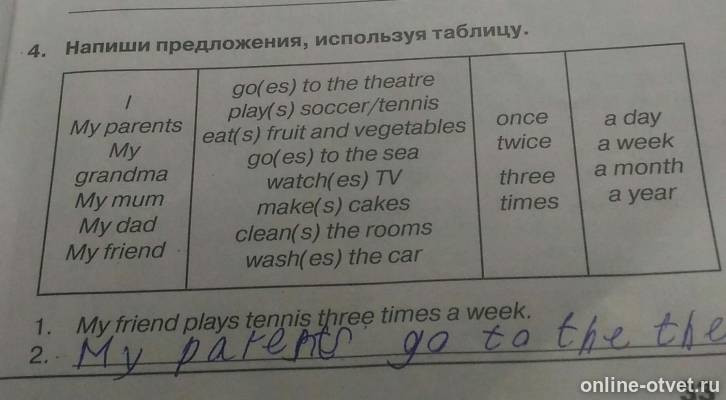 4. Напиши предложения, используя таблицу.
I
My parents
My
grandma
My mum
My dad
My friend
go(es) to the theatre
play(s) soccer/tennis
eat(s) fruit and vegetables
go(es) to the sea
watch(es) TV
make(s) cakes
clean(s) the rooms
wash(es) the car
once
twice
three
times
a day
a week
a month
a year
1. My friend plays tennis three times a week.
2. My parents go to the the
online-otvet.ru